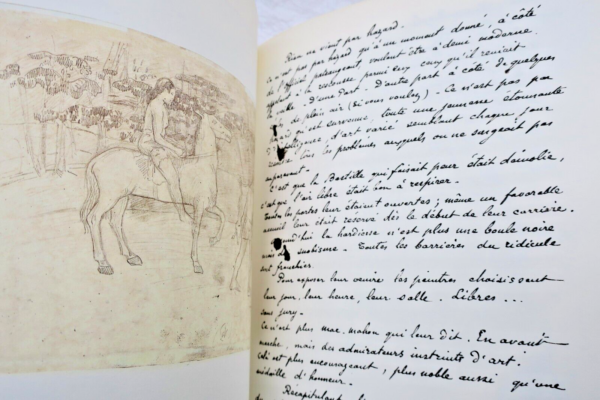 Rien n'est par hazard.
Ce n'est pas par hazard qu'à un moment donné, à côté
de l'officiel paissant, voulant être à demi moderne,
à la rescousse parmi eux ceux qu'il réunit
D'une part. D'autre part à côté de quelques
de plein air (si vous voulez) - Ce n'est pas par
qu'est survenue, toute une jeunesse étonnante
d'art varié semblant chaque jour
tous les problèmes auxquels on ne songeait pas
auparavant.
C'est que la Bastille qui faisait peur était démolie,
c'est que l'air libre était bon à respirer.
Toutes les portes leur étaient ouvertes; même un favorable
accueil leur était réservé dès le début de leur carrière.
Aujourd'hui la hardiesse n'est plus une boule noire
mais du snobisme - Toutes les barrières du ridicule
sont franchies.
Pour exposer leur oeuvre les peintres choisissent
leur jour, leur heure, leur salle. Libres...
sans jury.
Ce n'est plus mac. mahon qui leur dit. En avant
marche, mais des admirateurs instruits d'art.
Cela est plus encourageant, plus noble aussi qu'une
médaille d'honneur.
Récapitulant